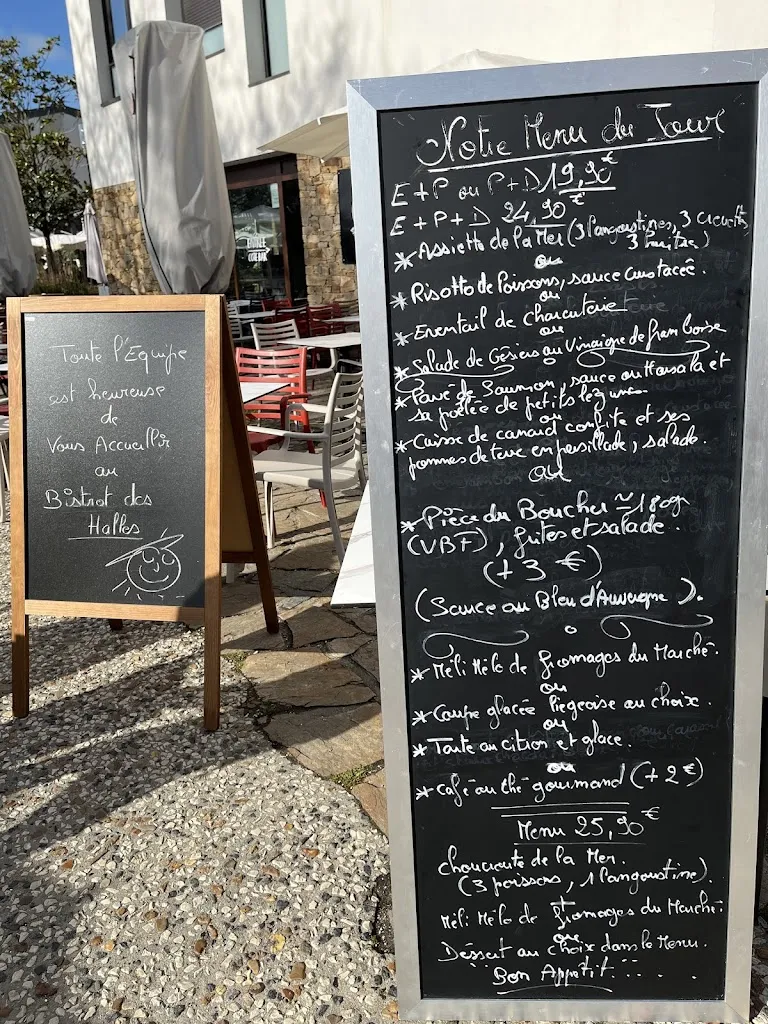 Toute l'Equipe
est heureuse
de
Vous Accueillir
au
Bistrot des
Halles
Notre Menu du Jour
E+P ou P+D 19,90€
E+P+D 24,90€
* Assiette de la Mer (3 langoustines, 3 crevettes,
3 huitres)
ou
* Risotto de Poissons, sauce crustacée.
ou
* Eventail de charcuterie
ou
* Salade de Gésiers au Vinaigre de framboise
* Pavé de Saumon, sauce au Marsala et
sa poêlée de petits légumes
ou
* Cuisse de canard confite et ses
pommes de terre en persillade, salade.
ou
* Pièce du Boucher ≃ 180gr
(VBF), frites et salade.
(+ 3 €)
(Sauce au Bleu d'Auvergne).
* Méli Mélo de fromages du Marché.
ou
* Coupe glacée liégeoise au choix.
ou
* Tarte au citron et glace.
ou
* Café ou thé gourmand (+ 2€)
Menu 25,90€
choucroute de la Mer.
(3 poissons, 1 langoustine).
Méli Mélo de fromages du Marché.
ou
Dessert au choix dans le Menu.
Bon Appétit....